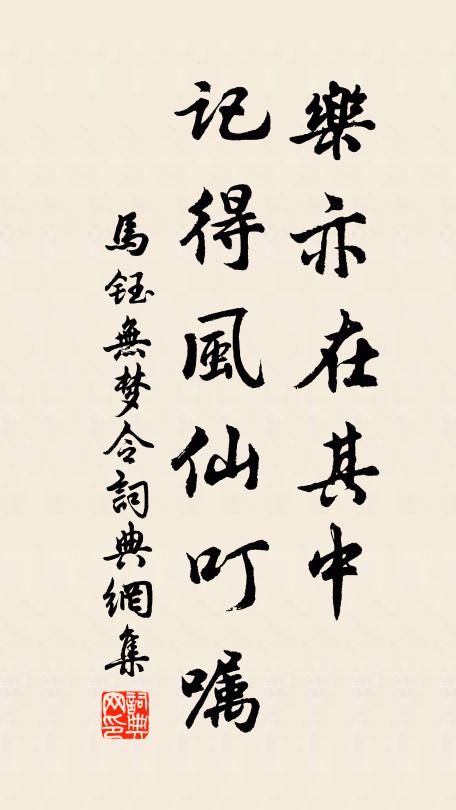 樂亦在其中
記得風仙叮嘱
馬鈺無梦令詞典網集
詞典网印